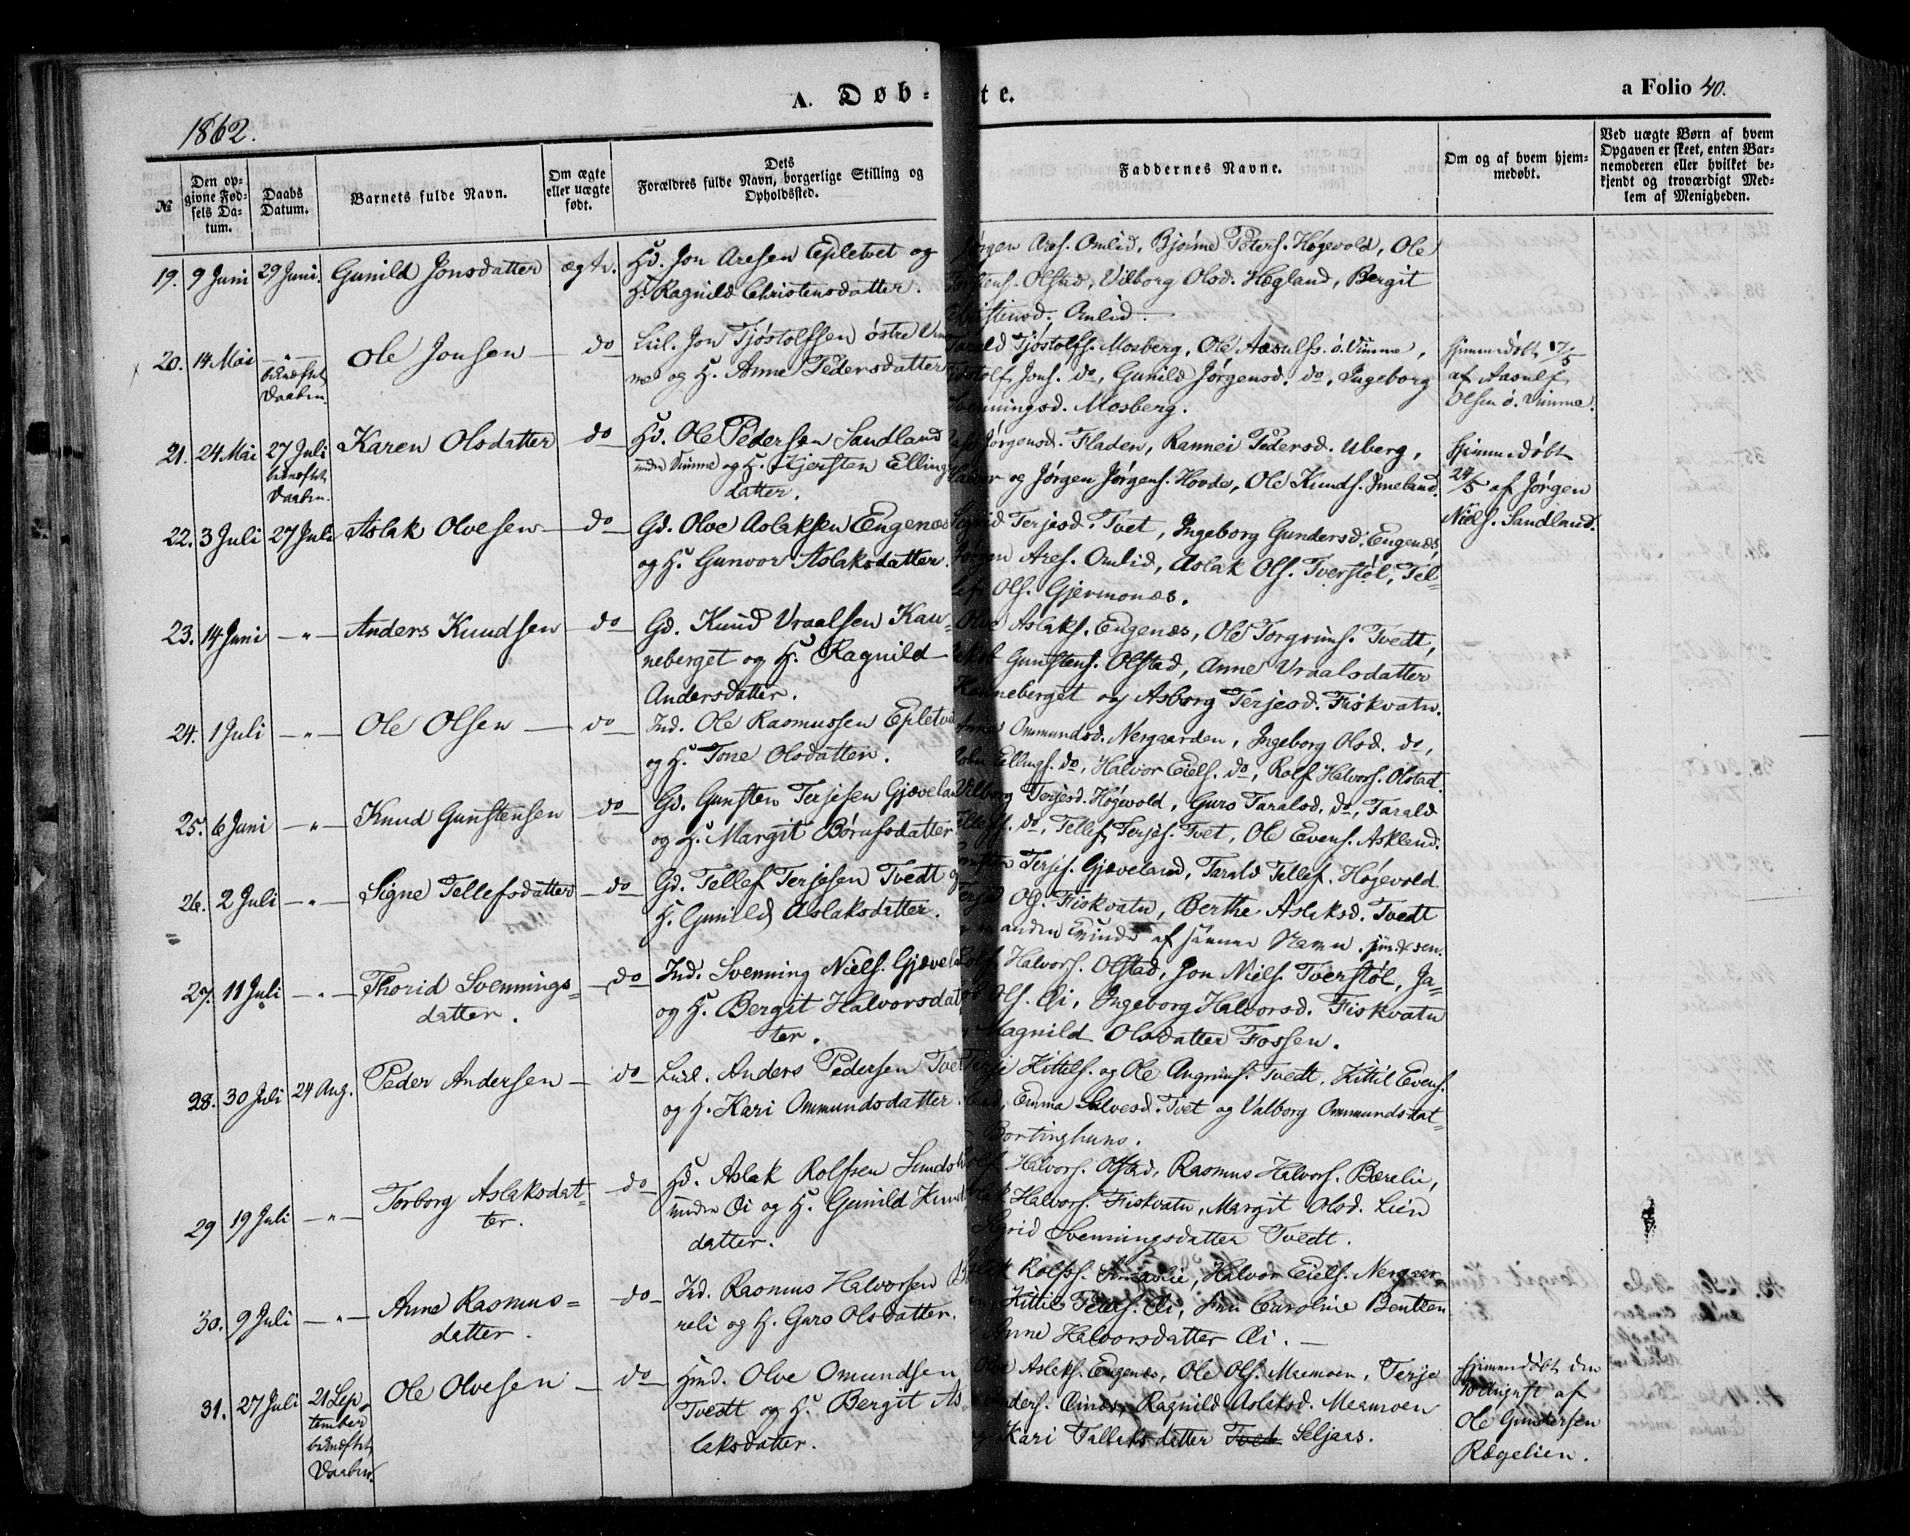 A. Døb- te.
a Folio 40.
1862.
№
Den op-
givne Fød-
sels Da-
tum.
Daabs
Datum.
Barnets fulde Navn.
Om ægte
eller uægte
født.
Dets
Forældres fulde Navn, borgerlige Stilling og
Opholdssted.
Faddernes Navne.
Om og af hvem hjem-
medøbt.
Ved uægte Børn af hvem
Opgaven er skeet, enten Bar-
nemoderen eller hvilket be-
kjendt og troværdigt Med-
lem af Menigheden.
19. 9 Juni 29 Juni. Gunild Jonsdatter ægte. Hd. Jon Aresen Epletvet og
H. Ragnild Christensdatter.
Jørgen Ares. Omlid, Bjørne Peters. Høgevold, Ole
Olstad, Vilborg Olsd. Hægland, Bergit
Christensd. Omlid.
20. 14 Mai — " — bekræftet Daaben. Ole Jonsen do Leil. Jon Tjøstolfsen østre Vim
me og H. Anne Pedersdatter
Tarald Tjøstolfs. Mosberg, Ole Aasulfs. ø. Vimme,
Tjøstolf Jons. do, Gunild Jørgensd. do, Ingeborg
Svenningsd. Mosberg.
Hjemmedøbt 17/5
af Aasulf
Olsen ø. Vimme.
21. 24 Mai 27 Juli bekræftet Daaben. Karen Olsdatter do Hd. Ole Pedersen Sandland
nedre Vimme og H. Kjersten Ellings
datter.
Jørgensd. Fladen, Rannei Pedersd. Uberg,
og Jørgen Jørgens. Hovde, Ole Knuds. Imeland.
Hjemmedøbt
24/5 af Jørgen
Niels. Sandland.
22. 3 Juli 27 Juli Aslak Olvesen do Gd. Olve Aslaksen Eugenæs
og H. Gunvor Aslaksdatter.
Sigrid Terjesd. Tvet, Ingeborg Gundersd. Eugenæs,
Jørgen Ares. Omlid, Aslak Ols. Tverstøl, Tel-
lef Ols. Gjermonæs.
23. 14 Juni — " — Anders Knudsen do Gd. Knud Vraalsen Kan-
neberget og H. Ragnild
Andersdatter.
Olve Aslaks. Eugenæs, Ole Torgrims. Tvedt,
Gunstens. Olstad, Anne Vraalsdatter
Kanneberget og Asborg Terjesd. Fiskvatn.
24. 1 Juli — " — Ole Olsen do Ind. Ole Rasmussen Epletvet
og H. Tone Olsdatter.
Anne Ommundsd. Nergaarden, Ingeborg Olsd. do,
Ellings. do, Halvor Eiels. do, Rolf Halvors. Olstad.
25. 6 Juni — " — Knud Gunstensen do Gd. Gunsten Terjesen Gjæveland
og H. Margit Børufsdatter
Vilborg Terjesd. Høgevold, Guro Taralsd. do, Tarald
Tellefs. do, Tellef Terjes. Tvet, Ole Evens. Askland.
26. 2 Juli — " — Signe Tellefsdatter do Gd. Tellef Terjesen Tvedt og
H. Gunild Aslaksdatter.
Gunsten Terjes. Gjæveland, Tarald Tellefs. Høgevold
Terje Ols. Fiskvatn, Berthe Aslaksd. Tvedt
anden Kvinde af samme Navn
27. 11 Juli — " — Thorid Svennings-
datter. do Ind. Svenning Niels. Gjævel
og H. Bergit Halvorsdat
ter.
Rolf Halvors. Olstad, Jon Niels. Tverstøl, Ja-
Ols. Øi, Ingeborg Halvorsd. Fiskvatn
Magnild Olsdatter Fossen.
28. 30 Juli 24 Aug. Peder Andersen do Leil. Anders Pedersen Tvet
og H. Kari Ommundsdatter
Terje Kittels. og Ole Angrims. Tvedt. Kittil Evens.
Emma Salvesd. Tvet og Valborg Ommundsdat-
Bortinghuus.
29 19 Juli — " — Torborg Aslaksdat-
ter. do Hd. Aslak Rolfsen Lunds
nedre Øi og H. Gunild Knuds
datter.
Rolf Halvors. Olstad, Rasmus Halvors. Bærelie,
Halvors. Fiskvatn, Margit Olsd. Lien
Sigrid Svenningsdatter Tvedt.
30. 9 Juli — " — Anne Rasmus-
datter. do Ind. Rasmus Halvorsen Bæ
reli og H. Guro Olsdatter.
Aslak Rolfs. Halvor Eiels. Nergaar
Kittil Fru Caroline Bentzen
Anne Halvorsdatter Øi.
31. 27 Juli 21 Sep-
tember
bekræftet
Daaben. Ole Olvesen do Hmd. Olve Omundsen
Tvedt og H. Bergit As-
laksdatter.
Olve Aslaks. Eugenæs, Ole Ols. Maemoen, Terje
Gunders. Ragnild Aslaksd. Maemoen
og Kari Tallaksdatter Tvet Seljaas.
Hjemmedøbt den
10 August af
Ole Gundersen
Rægelien.